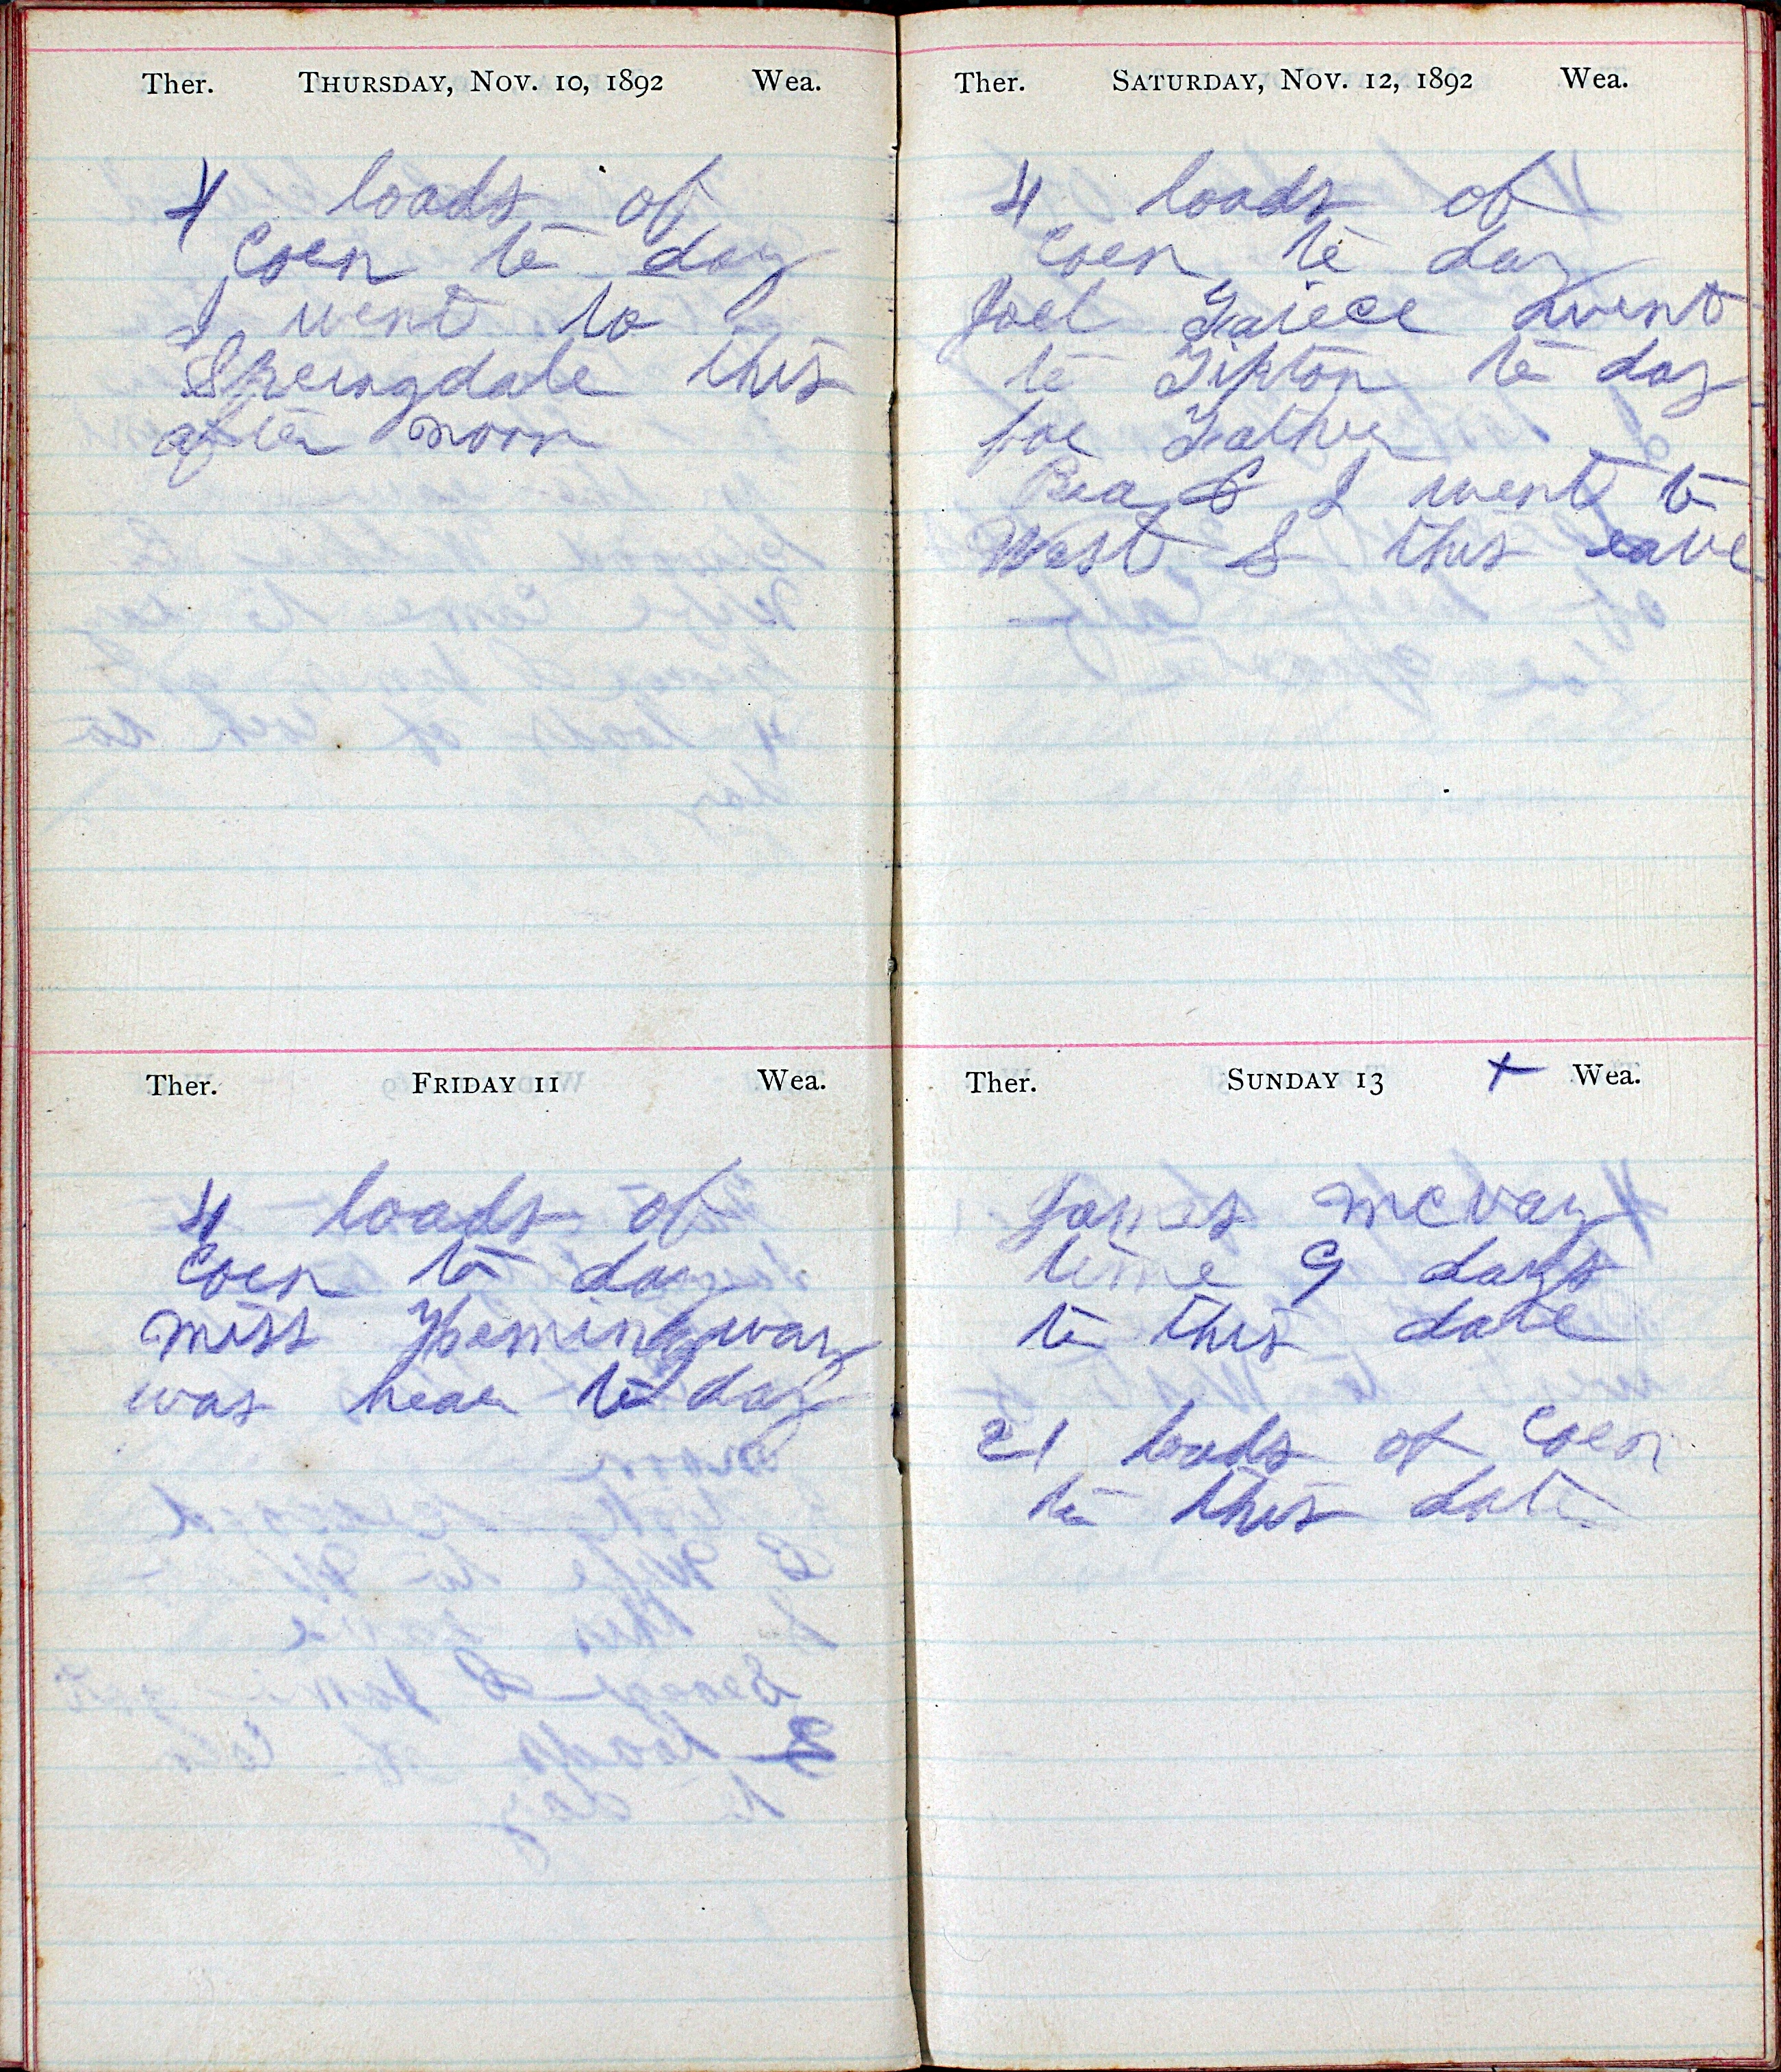 Ther. THURSDAY, NOV. 10, 1892 Wea.
4 loads of
Corn to day
I went to
Springdale this
after noon
Ther. FRIDAY 11 Wea.
4 loads of
Corn to day
miss Hemingway
was hear to day
Ther. SATURDAY, NOV. 12, 1892 Wea.
4 loads of
Corn to day
Joel went
to Tipton to day
for Father
& I went to
West B this eave
Ther. SUNDAY 13 + Wea.
James McVay
time 9 days
to this date
21 loads of Corn
to this date